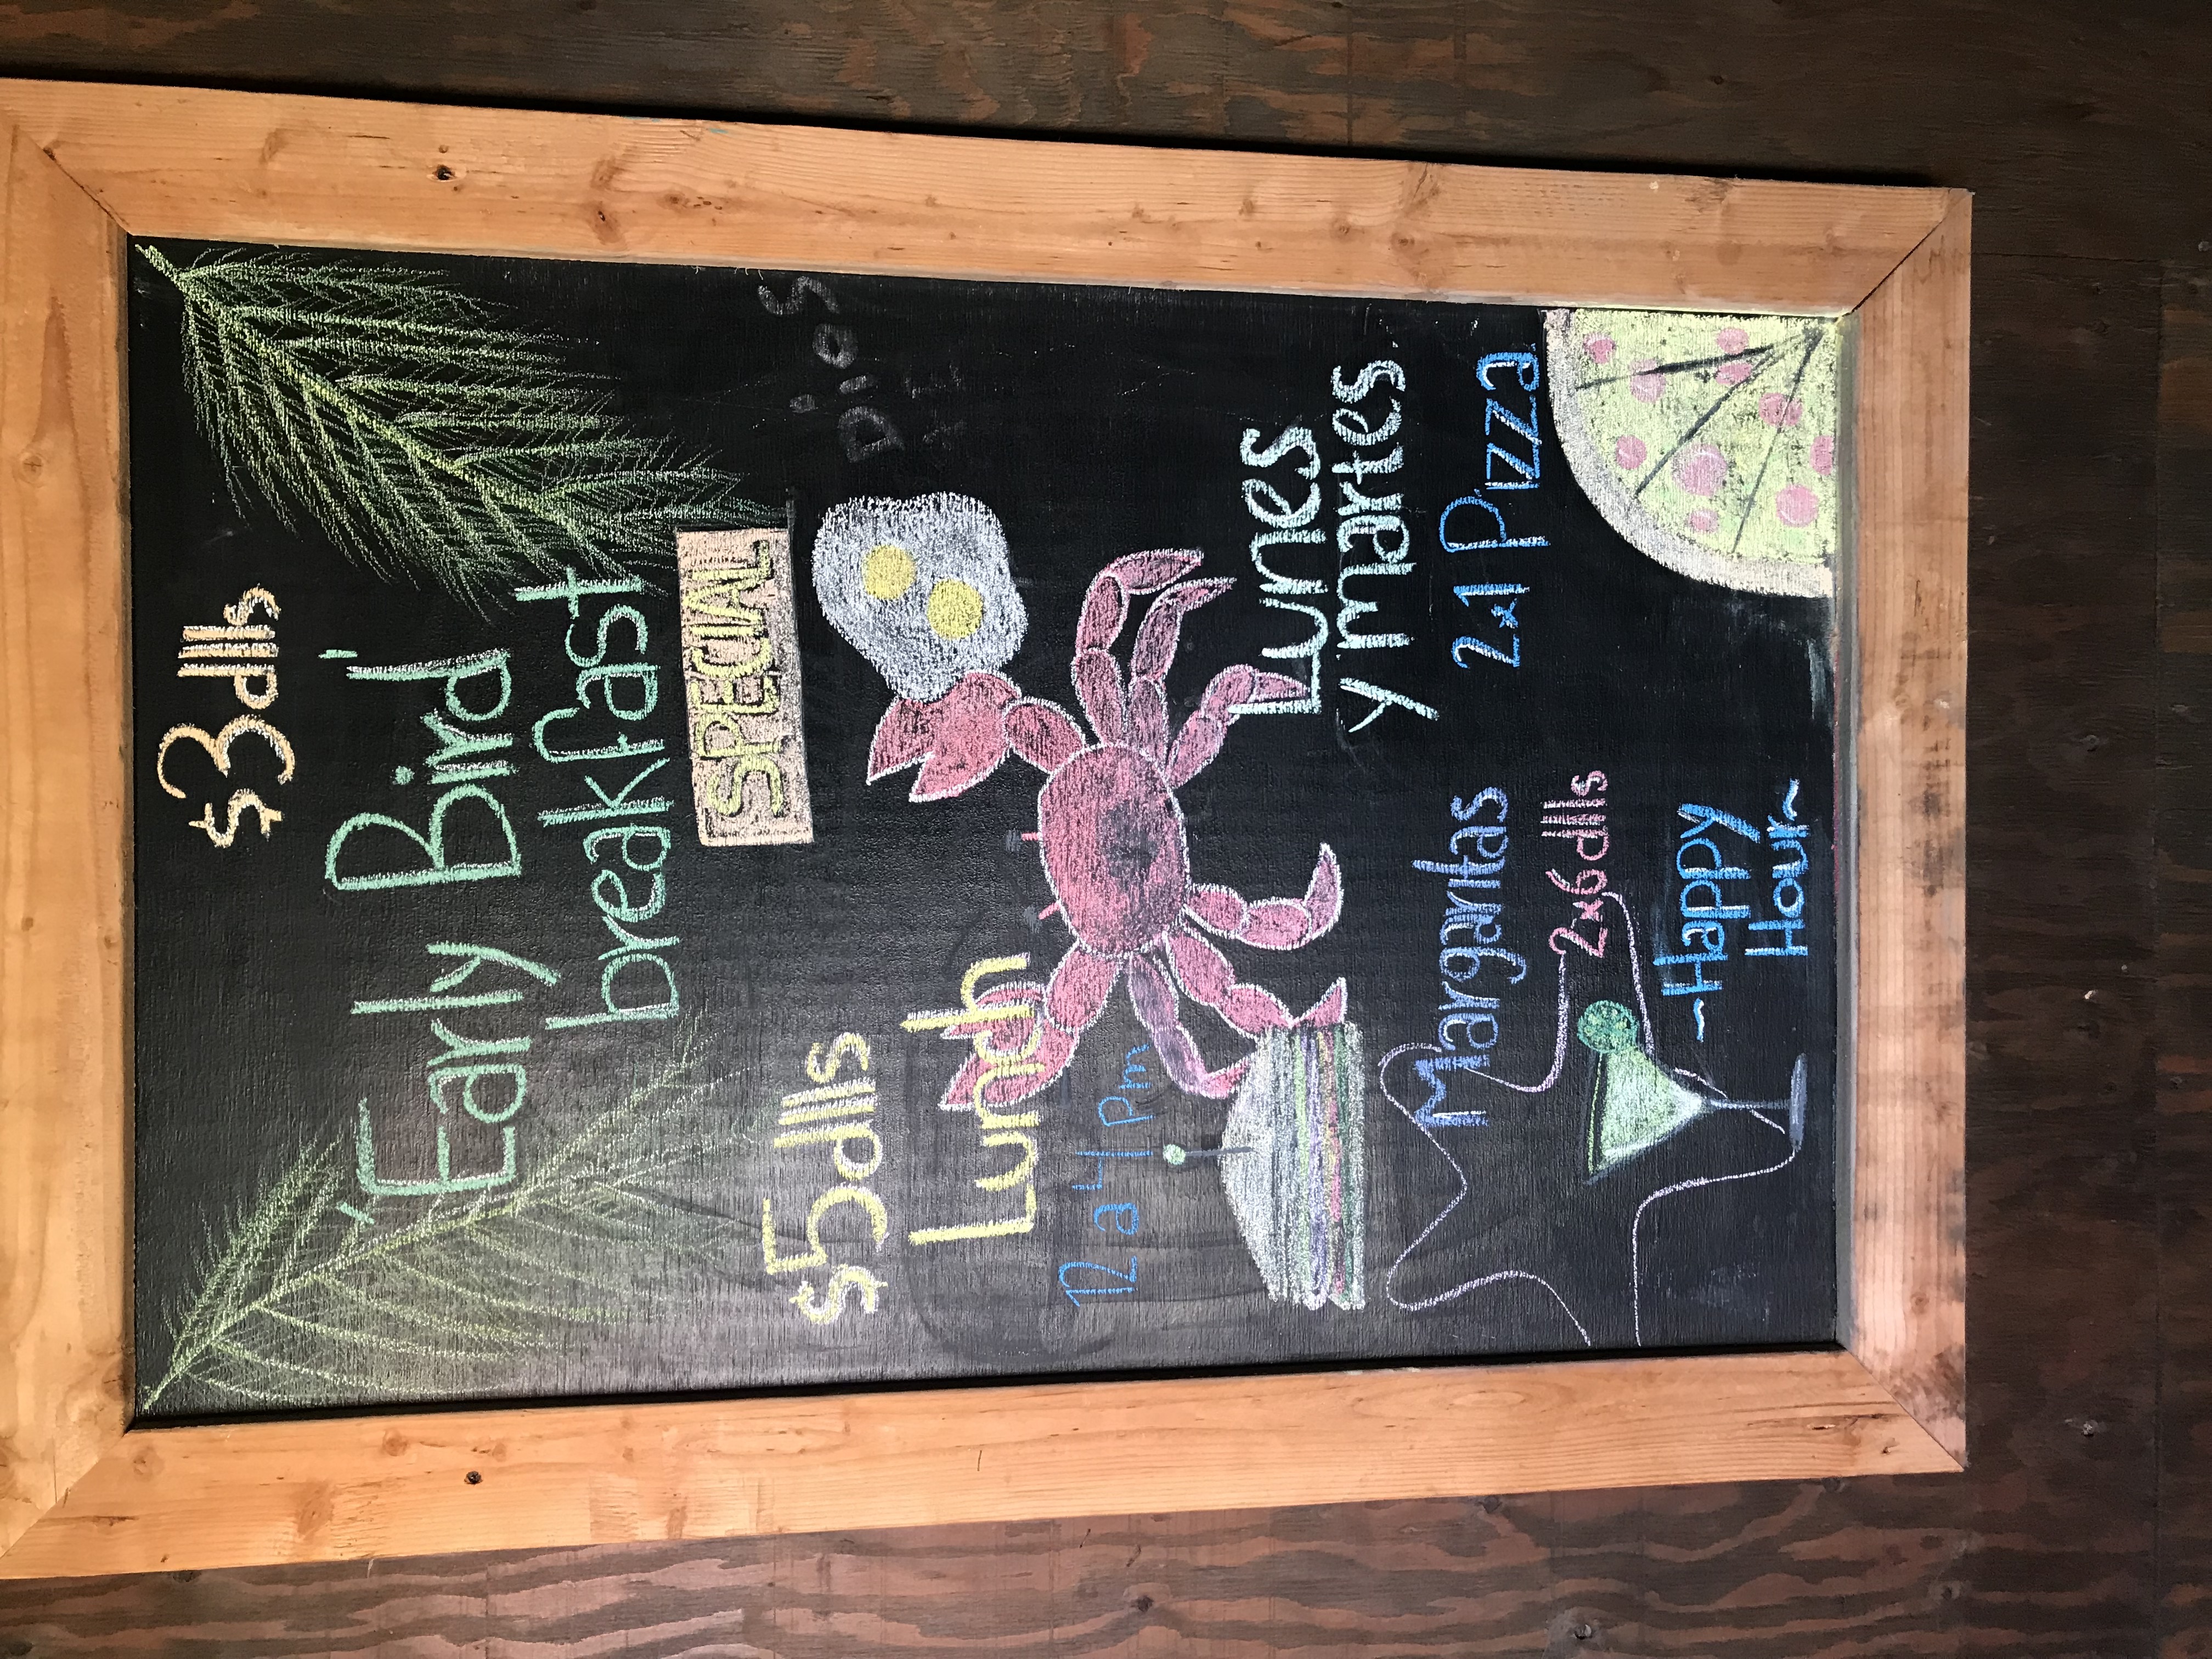 $3dlls
'Early Bird'
breakfast
SPECIAL
$5dlls
Lunch
12 a 4 Pm
Dios
Lunes
y martes
2x1 Pizza
Margaritas
2x6 dlls
~Happy
Hour~